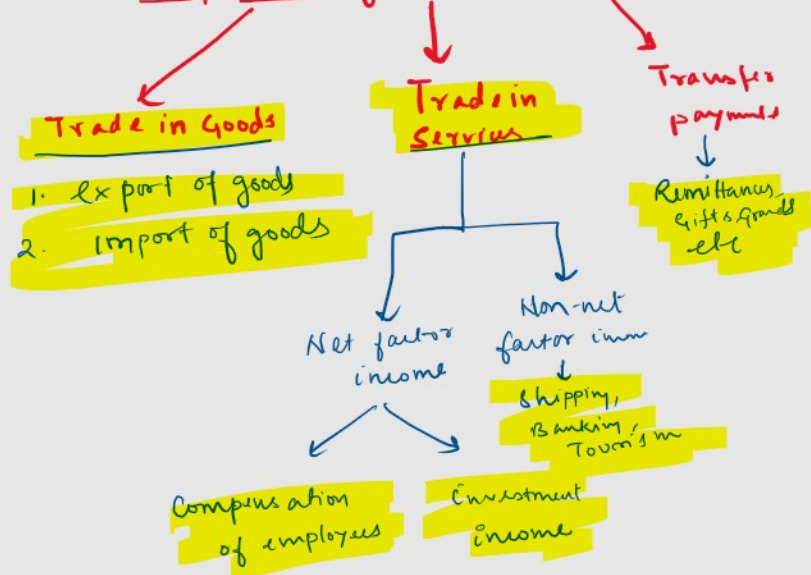 Trade in Goods
1. export of goods
2. import of goods
Trade in
Services
Net factor
income
Compensation
of employees
investment
income
Non-net
factor
Shipping,
Banking,
Tourism
Transfer
payments
Remittances,
Gifts,
etc